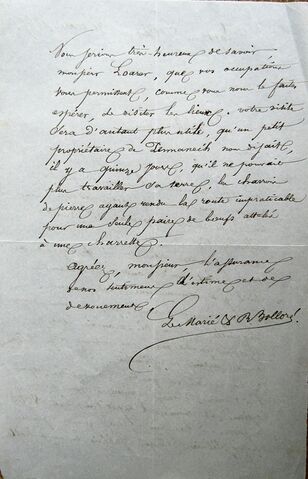 Nous serions très heureux de savoir
monsieur Loarer, que vos occupations
vous permissent, comme vous nous le faites
espérer, de visiter les lieux. votre visite
sera d'autant plus utile, qu'un petit
propriétaire de nous disait,
il y a quinze jours, qu'il ne pouvait
plus travailler sa terre, le charroi
de pierre ayant rendu la route impraticable
pour une seule paire de bœufs attelé
à une charrette.
agréez, monsieur l'assurance
de nos sentiments d'estime et de
dévouement
Le Marié & R Bolloré